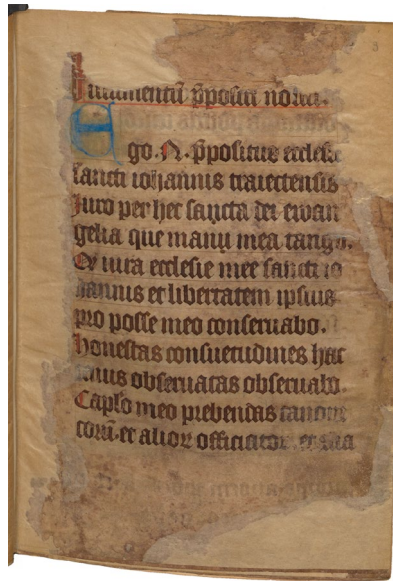 Iuramentū p̄positi noui.
Ego .N. p̄positus ecclesie
sancti iohannis traiectensis
Iuro per hec sancta dei ewan
gelia que manu mea tango.
Qꝫ iura ecclesie mee sancti io
hannis et libertatem ipsius
pro posse meo conseruabo.
honestas consuetudines hac
tenus obseruatas obseruabo.
Caplo meo prebendas canoni
corū. et alior officiator et